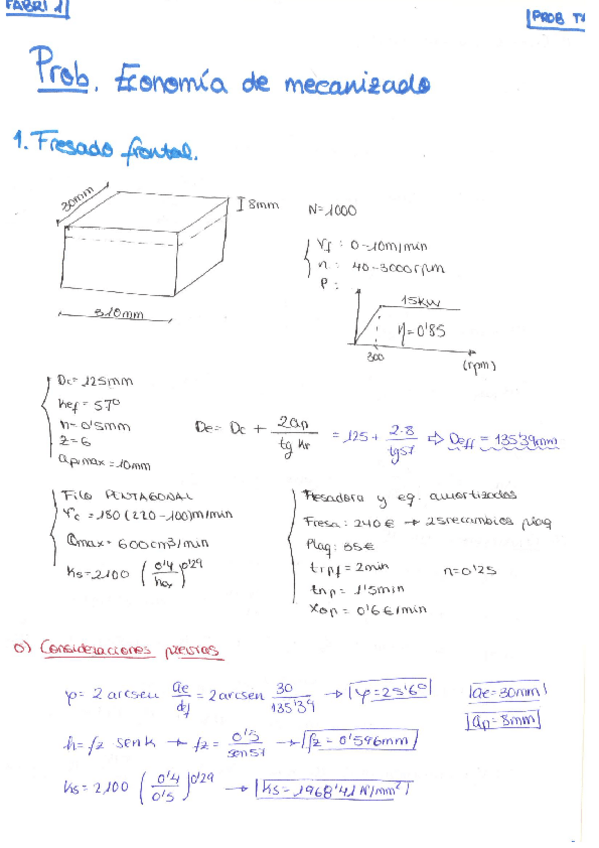 FABRI 1
PROB T
Prob. Economía de mecanizado
1. Fresado frontal.
30mm
8mm
310mm
N=1000
Vf: 0-10m/min
n: 40-3000rpm
P:
15kW
η=0'85
300
(rpm)
Dc=125mm
Kef=57º
h=0'5mm
z=6
apmax=10mm
De= Dc + 2ap / tg Kr = 125 + 2·8 / tg57 ⇒ Deff = 135'39mm
Filo PENTAGONAL
Vc=180 (220-100)m/min
Qmax=600cm3/min
Ks=2100 (0'4 / hor)^0'29
Fresadora y eq. amortizados
Fresa: 240€ → 25recambios plaq
Plaq: 35€
trpf=2min
n=0'25
tnp= 1'5min
xop= 0'6€/min
0) Consideraciones previas
φ= 2 arcsen ae / df = 2arcsen 30 / 135'39 → φ=25'6º
ae=30mm
ap=8mm
h=fz senk → fz= 0'5 / sen57 → fz=0'596mm
Ks=2100 (0'4 / 0'5)^0'29 → Ks=1968'41N/mm²